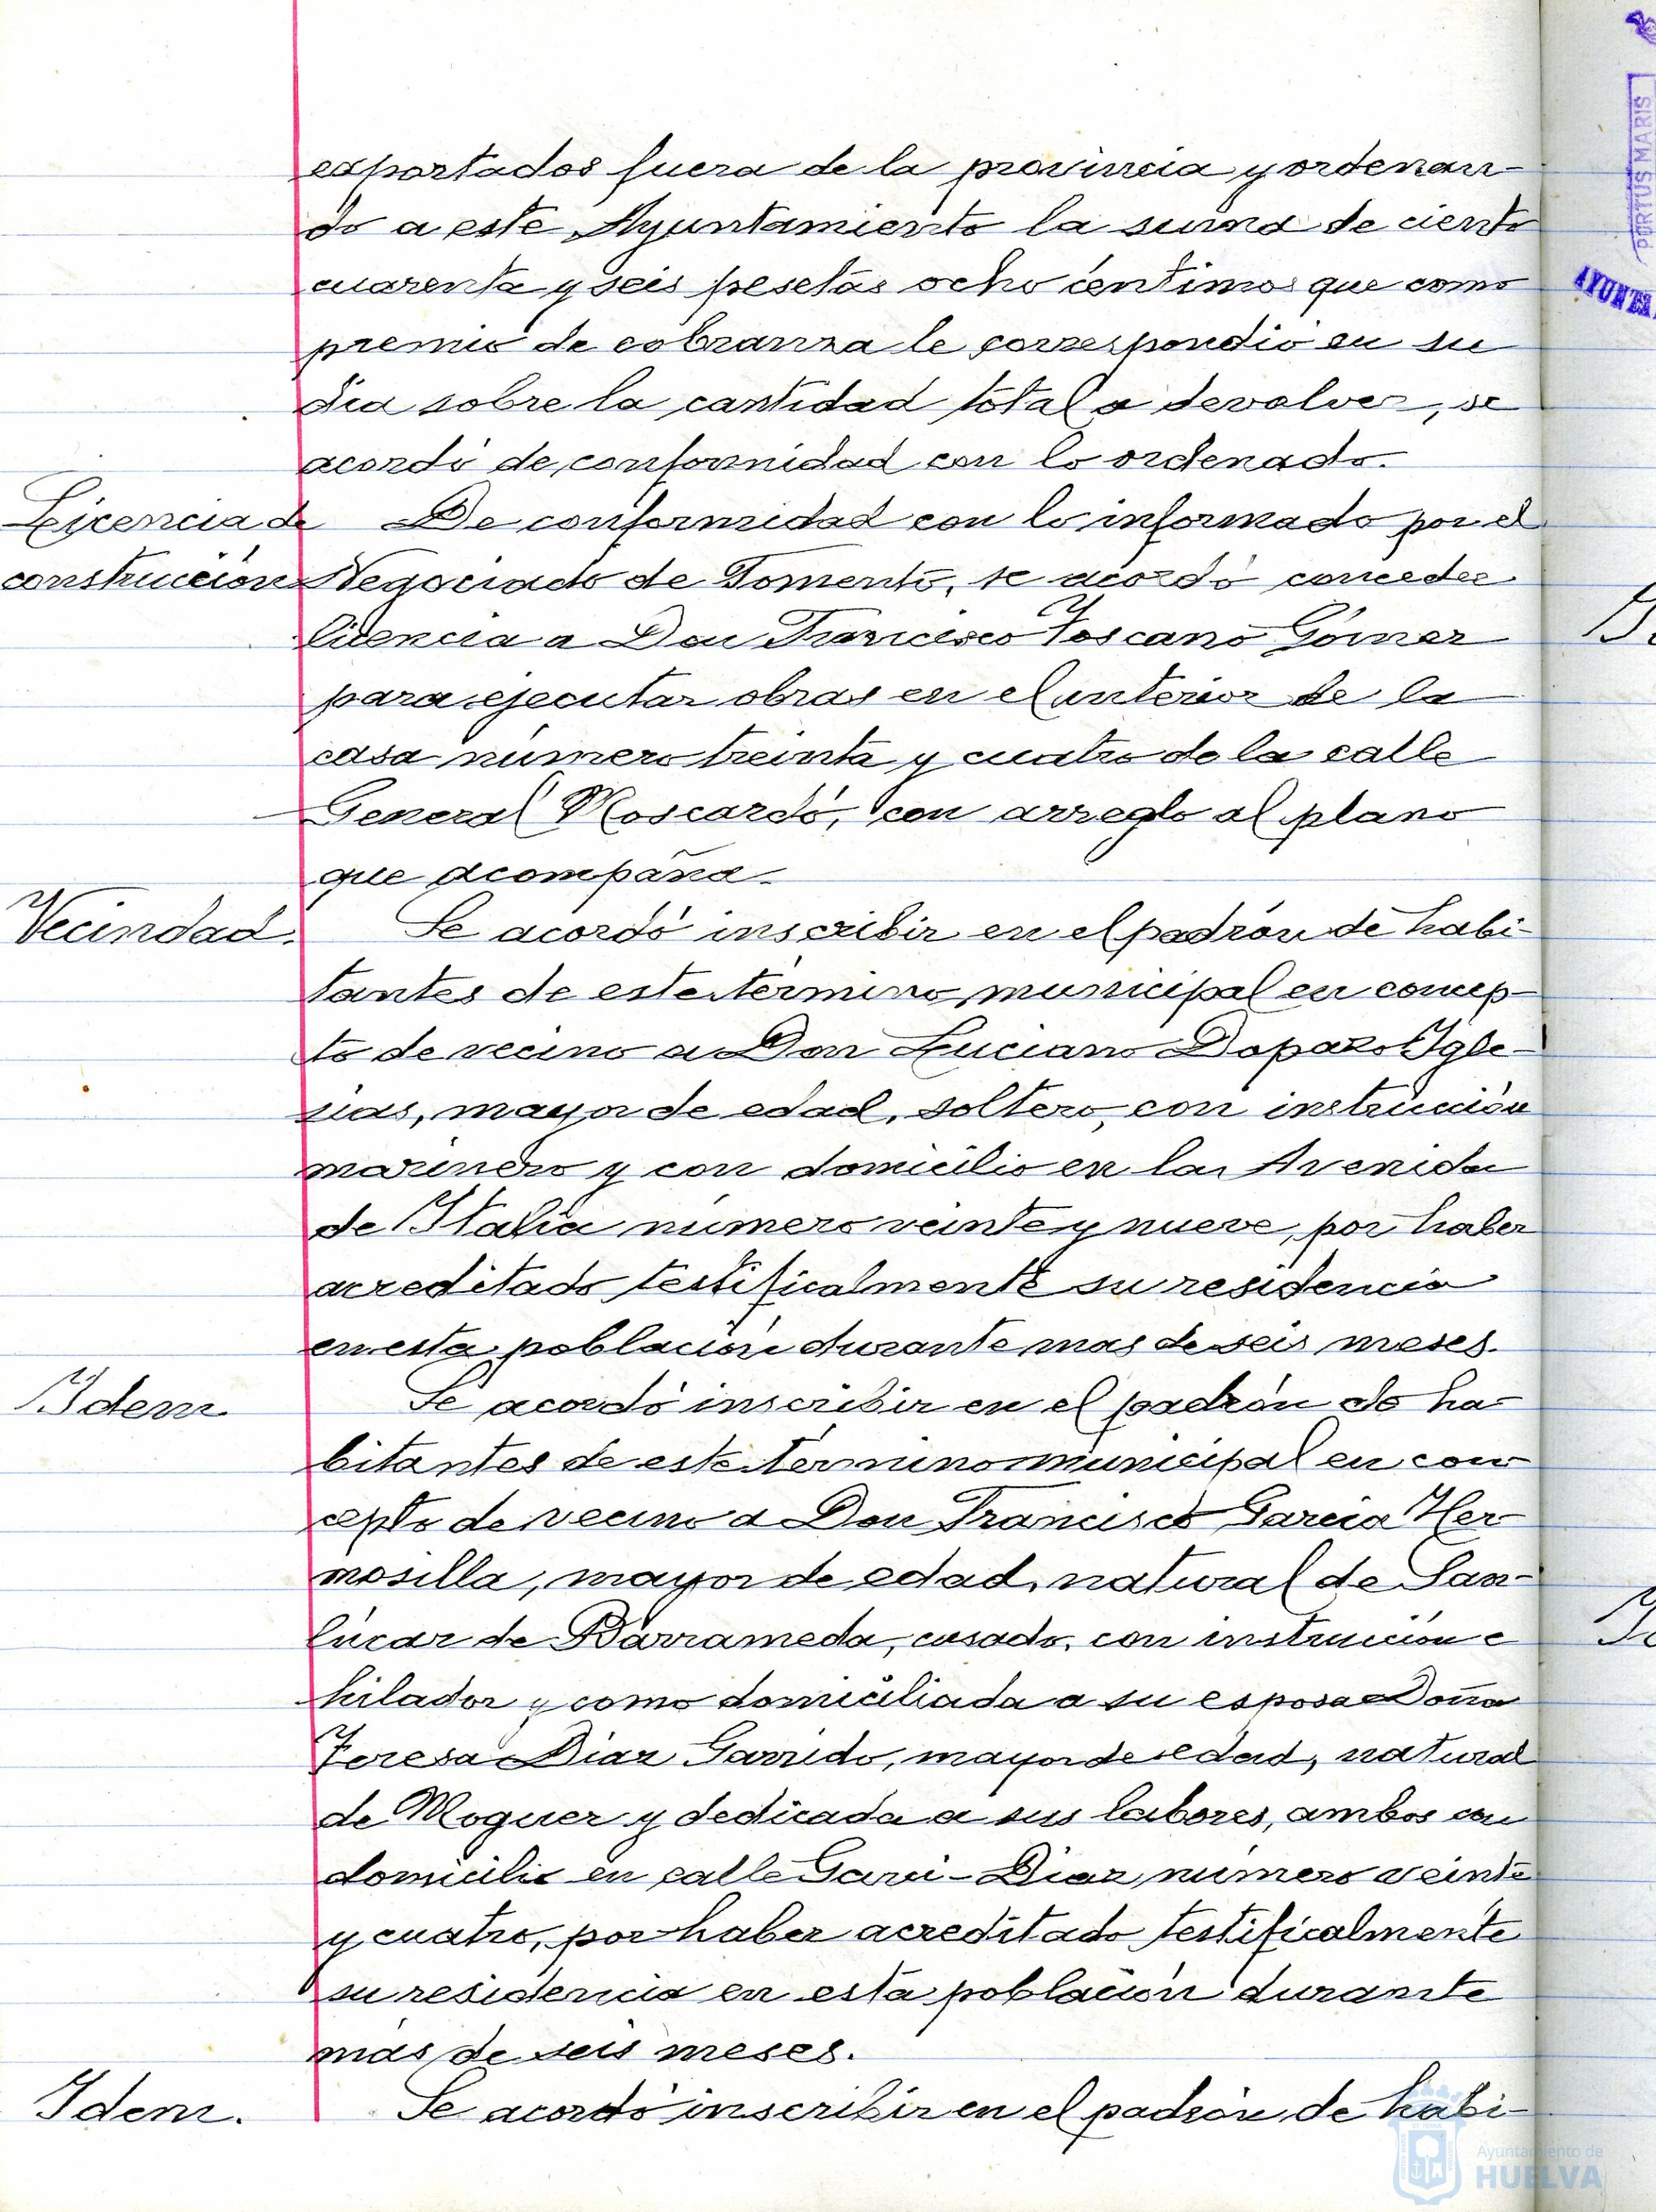 exportados fuera de la provincia y ordenan-
do a este Ayuntamiento la suma de ciento
cuarenta y seis pesetas ocho centimos que como
premio de cobranza le correspondió en su
dia sobre la cantidad total a devolver, se
acordó de conformidad con lo ordenado.
Licencia de
construcción
De conformidad con lo informado por el
Negociado de Fomento, se acordó conceder
licencia a Don Francisco Toscano Gómez
para ejecutar obras en el interior de la
casa número treinta y cuatro de la calle
General Moscardó, con arreglo al plano
que acompaña.
Vecindad.
Se acordó inscribir en el padrón de habi-
tantes de este término municipal en concep-
to de vecino a Don Luciano Dopazo Igle-
sias, mayor de edad, soltero, con instrucción
marinero y con domicilio en la Avenida
de Italia número veinte y nueve, por haber
acreditado testificalmente su residencia
en esta población durante mas de seis meses.
Idem
Se acordó inscribir en el padrón de ha-
bitantes de este término municipal en con-
cepto de vecino a Don Francisco Garcia Her-
mosilla, mayor de edad, natural de San-
lúcar de Barrameda, casado, con instrucción e
hilador y como domiciliada a su esposa Doña
Teresa Diaz Garrido, mayor de edad, natural
de Moguer y dedicada a sus labores, ambos con
domicilio en calle Garci-Diaz número veinte
y cuatro, por haber acreditado testificalmente
su residencia en esta población durante
más de seis meses.
Idem.
Se acordó inscribir en el padrón de habi-
PORTUS MARIS
AYUNTA
Ayuntamiento de
HUELVA